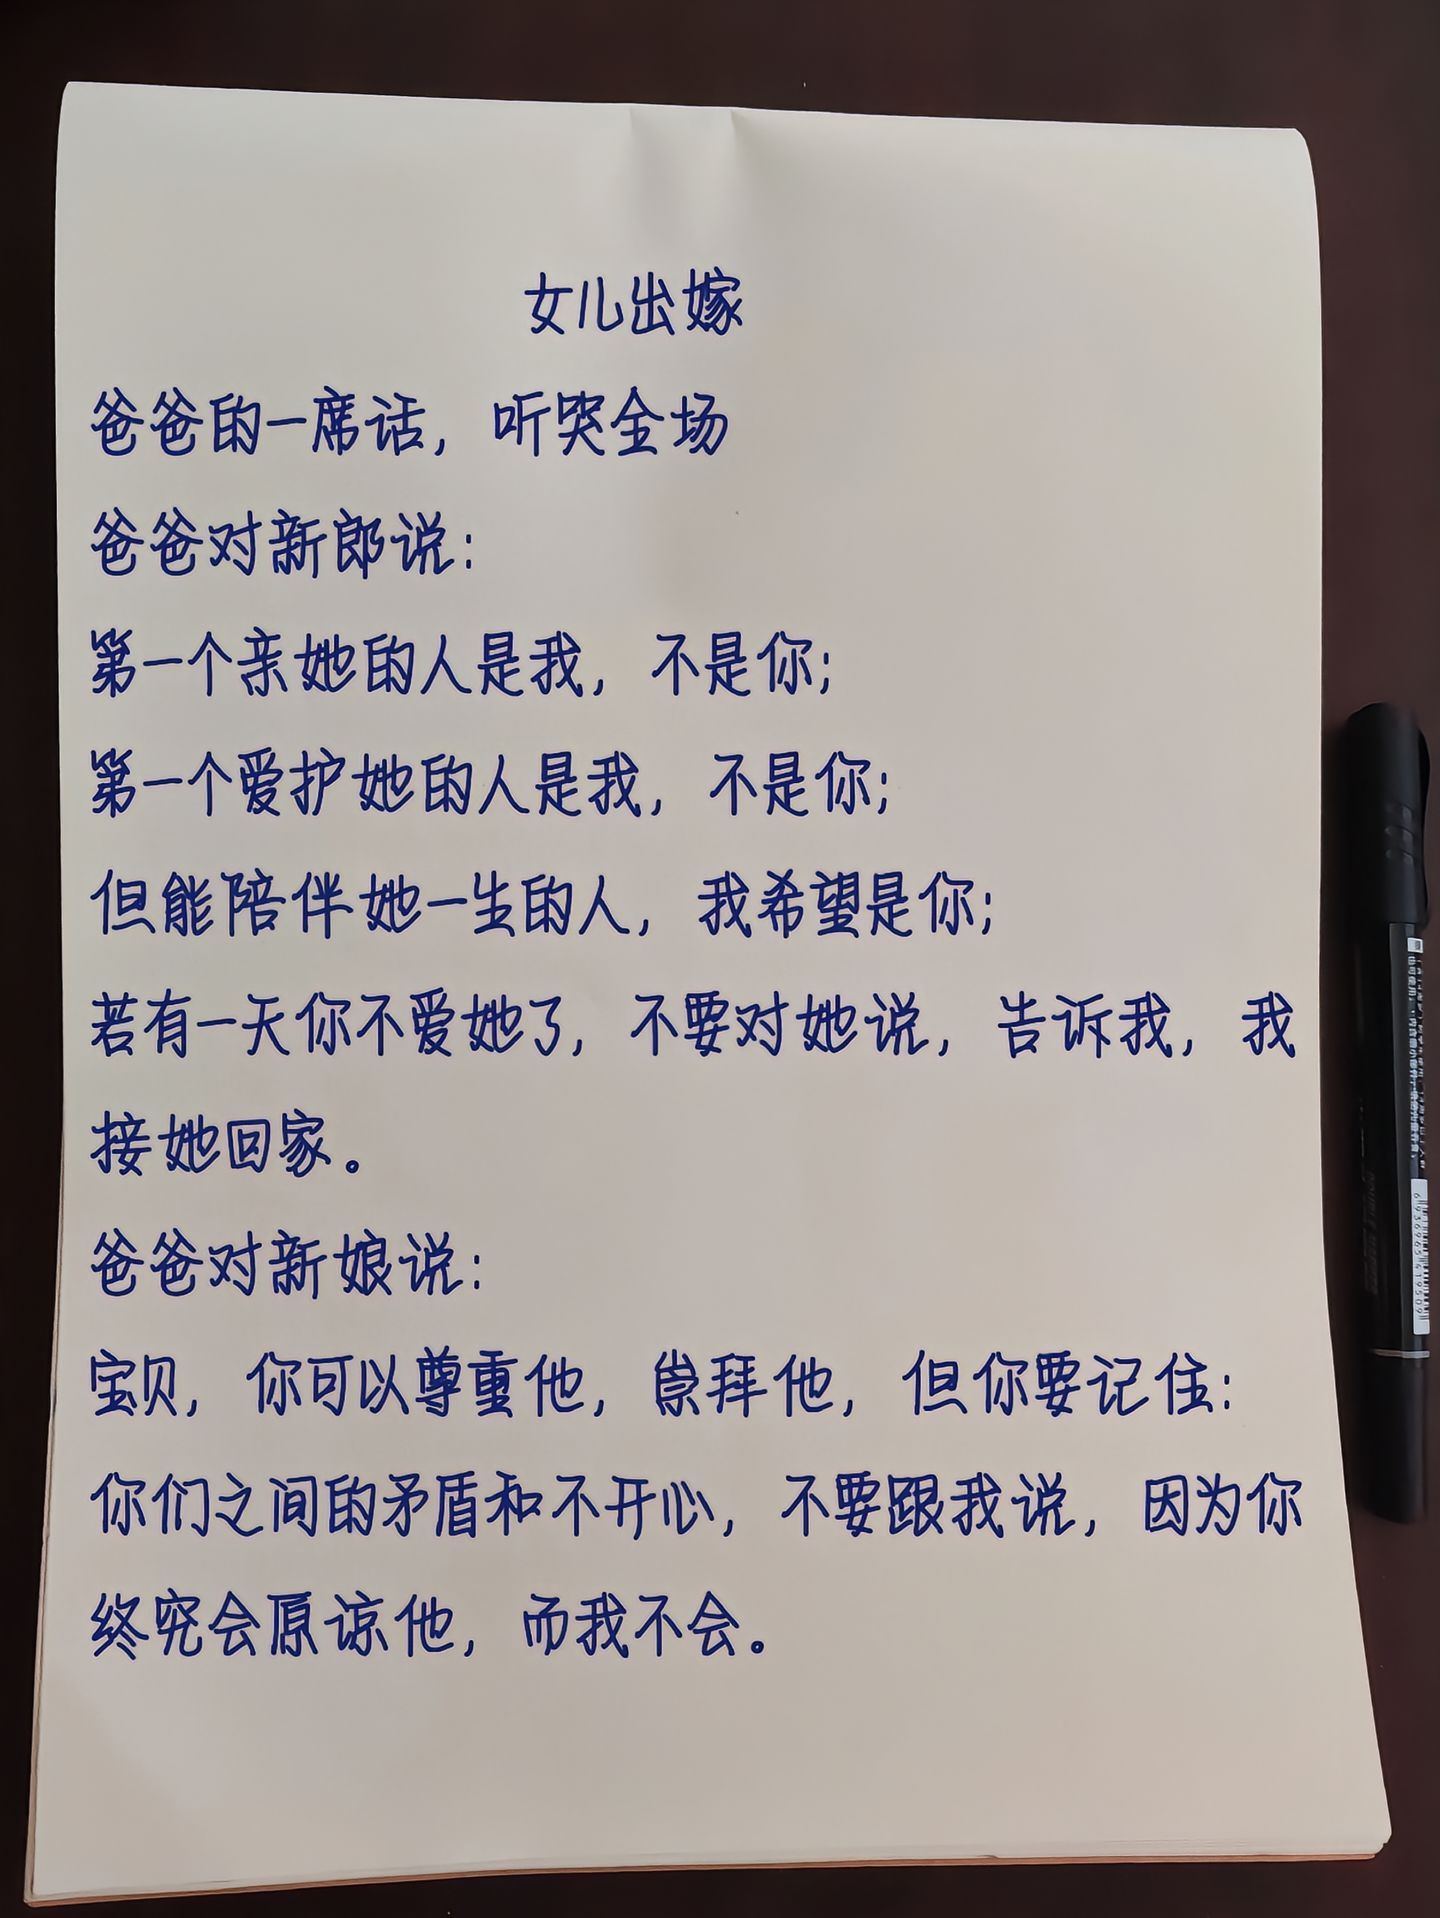 女儿出嫁
爸爸的一席话，听哭全场
爸爸对新郎说：
第一个亲她的人是我，不是你；
第一个爱护她的人是我，不是你；
但能陪伴她一生的人，我希望是你；
若有一天你不爱她了，不要对她说，告诉我，我
接她回家。
爸爸对新娘说：
宝贝，你可以尊重他，崇拜他，但你要记住：
你们之间的矛盾和不开心，不要跟我说，因为你
终究会原谅他，而我不会。